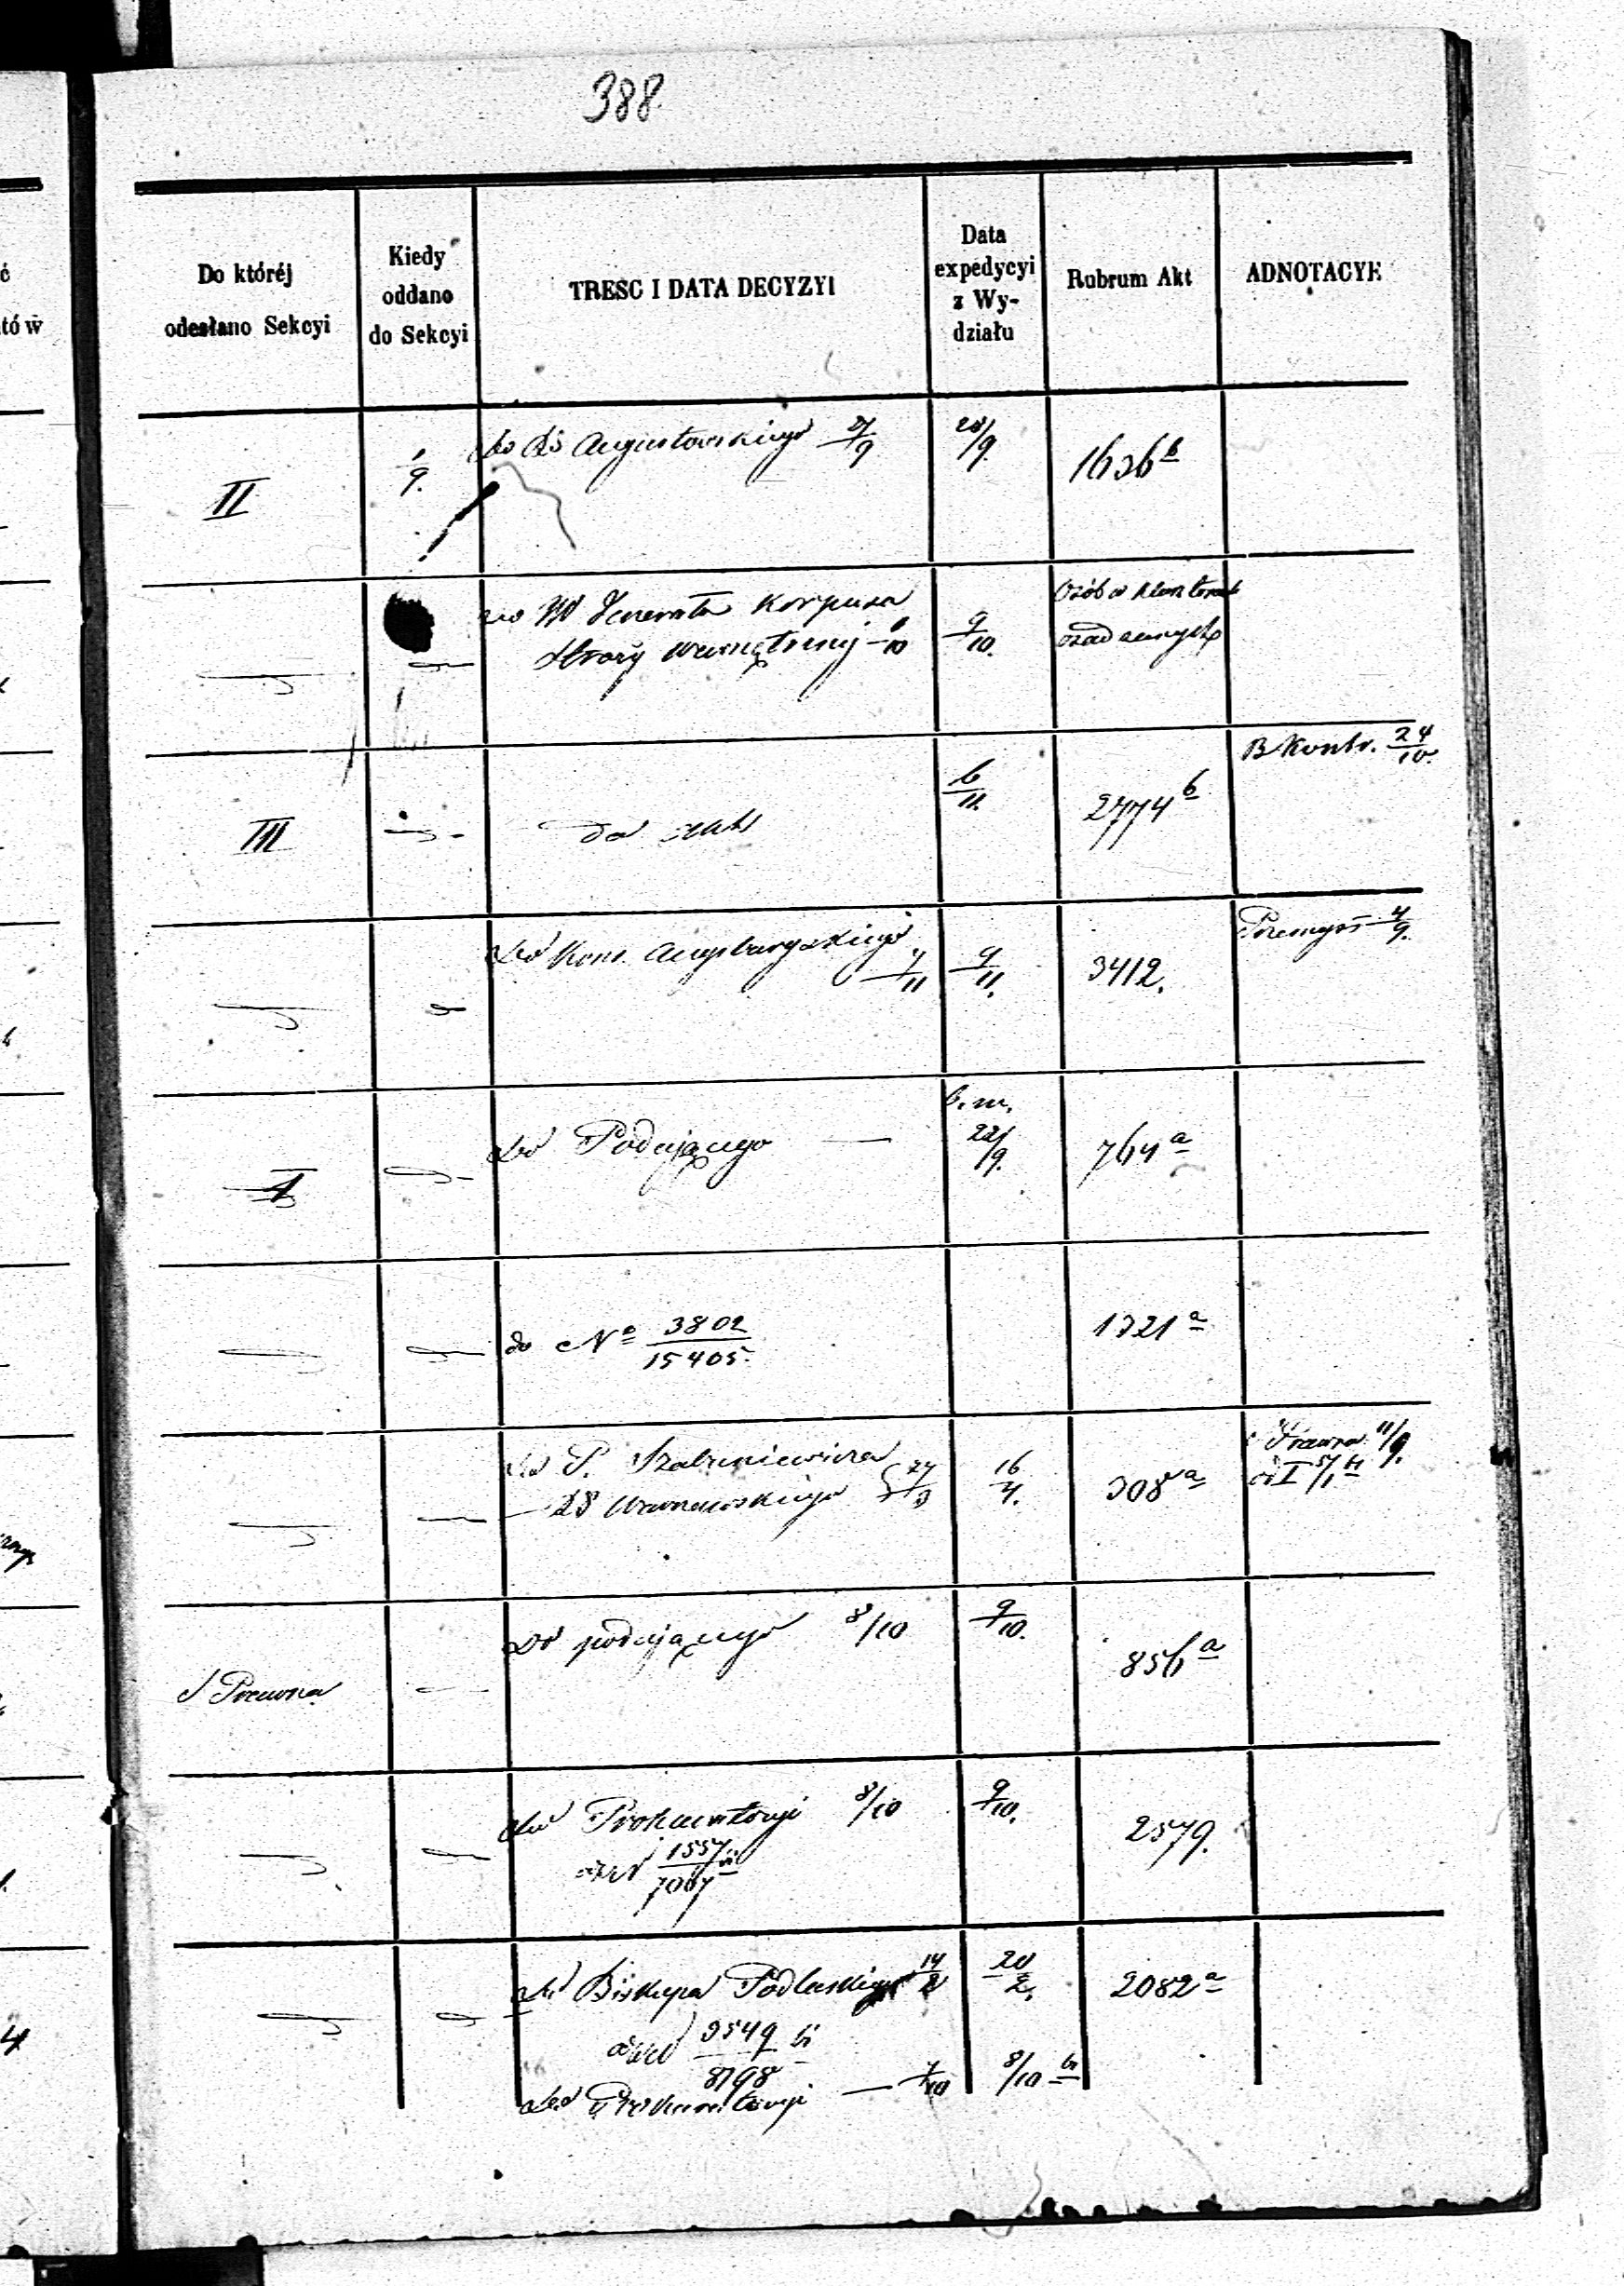 388.
Do któréj
odesłano Sekcyi
Kiedy
oddano
do Sekcyi
TRESC I DATA DECYZYI
Data
expedycyi
z Wy-
działu
Rubrum Akt
ADNOTACYE
II
1/9.
do Augustowskiego 27/9
28/9.
1636 b
do Jenerała Korpusu
Straży Wewnętrznej 6/10
9/10.
Osób w klasztorach
osadzonych
III
do akt
6/11.
2774 b
B Kontr. 24/10.
do Kons. Augsburgskiego
7/11
9/11.
3412.
Przemysł 4/9.
I
do Podającego —
b. m.
22/9.
764 a
do No 3802/15405.
1321 a
do P.
Warszawskiego 27/3
16/4.
308 a
Prawna 11/9.
od I
Prawna
do podającego 8/10
9/10.
856 a
do Prokuratoryi 8/10
ad No 1557/7067
9/10.
2579.
do Biskupa Podlaskiego 14/2
20/2.
2082 a
3549/8798
do Prokuratoryi — 7/10
8/10